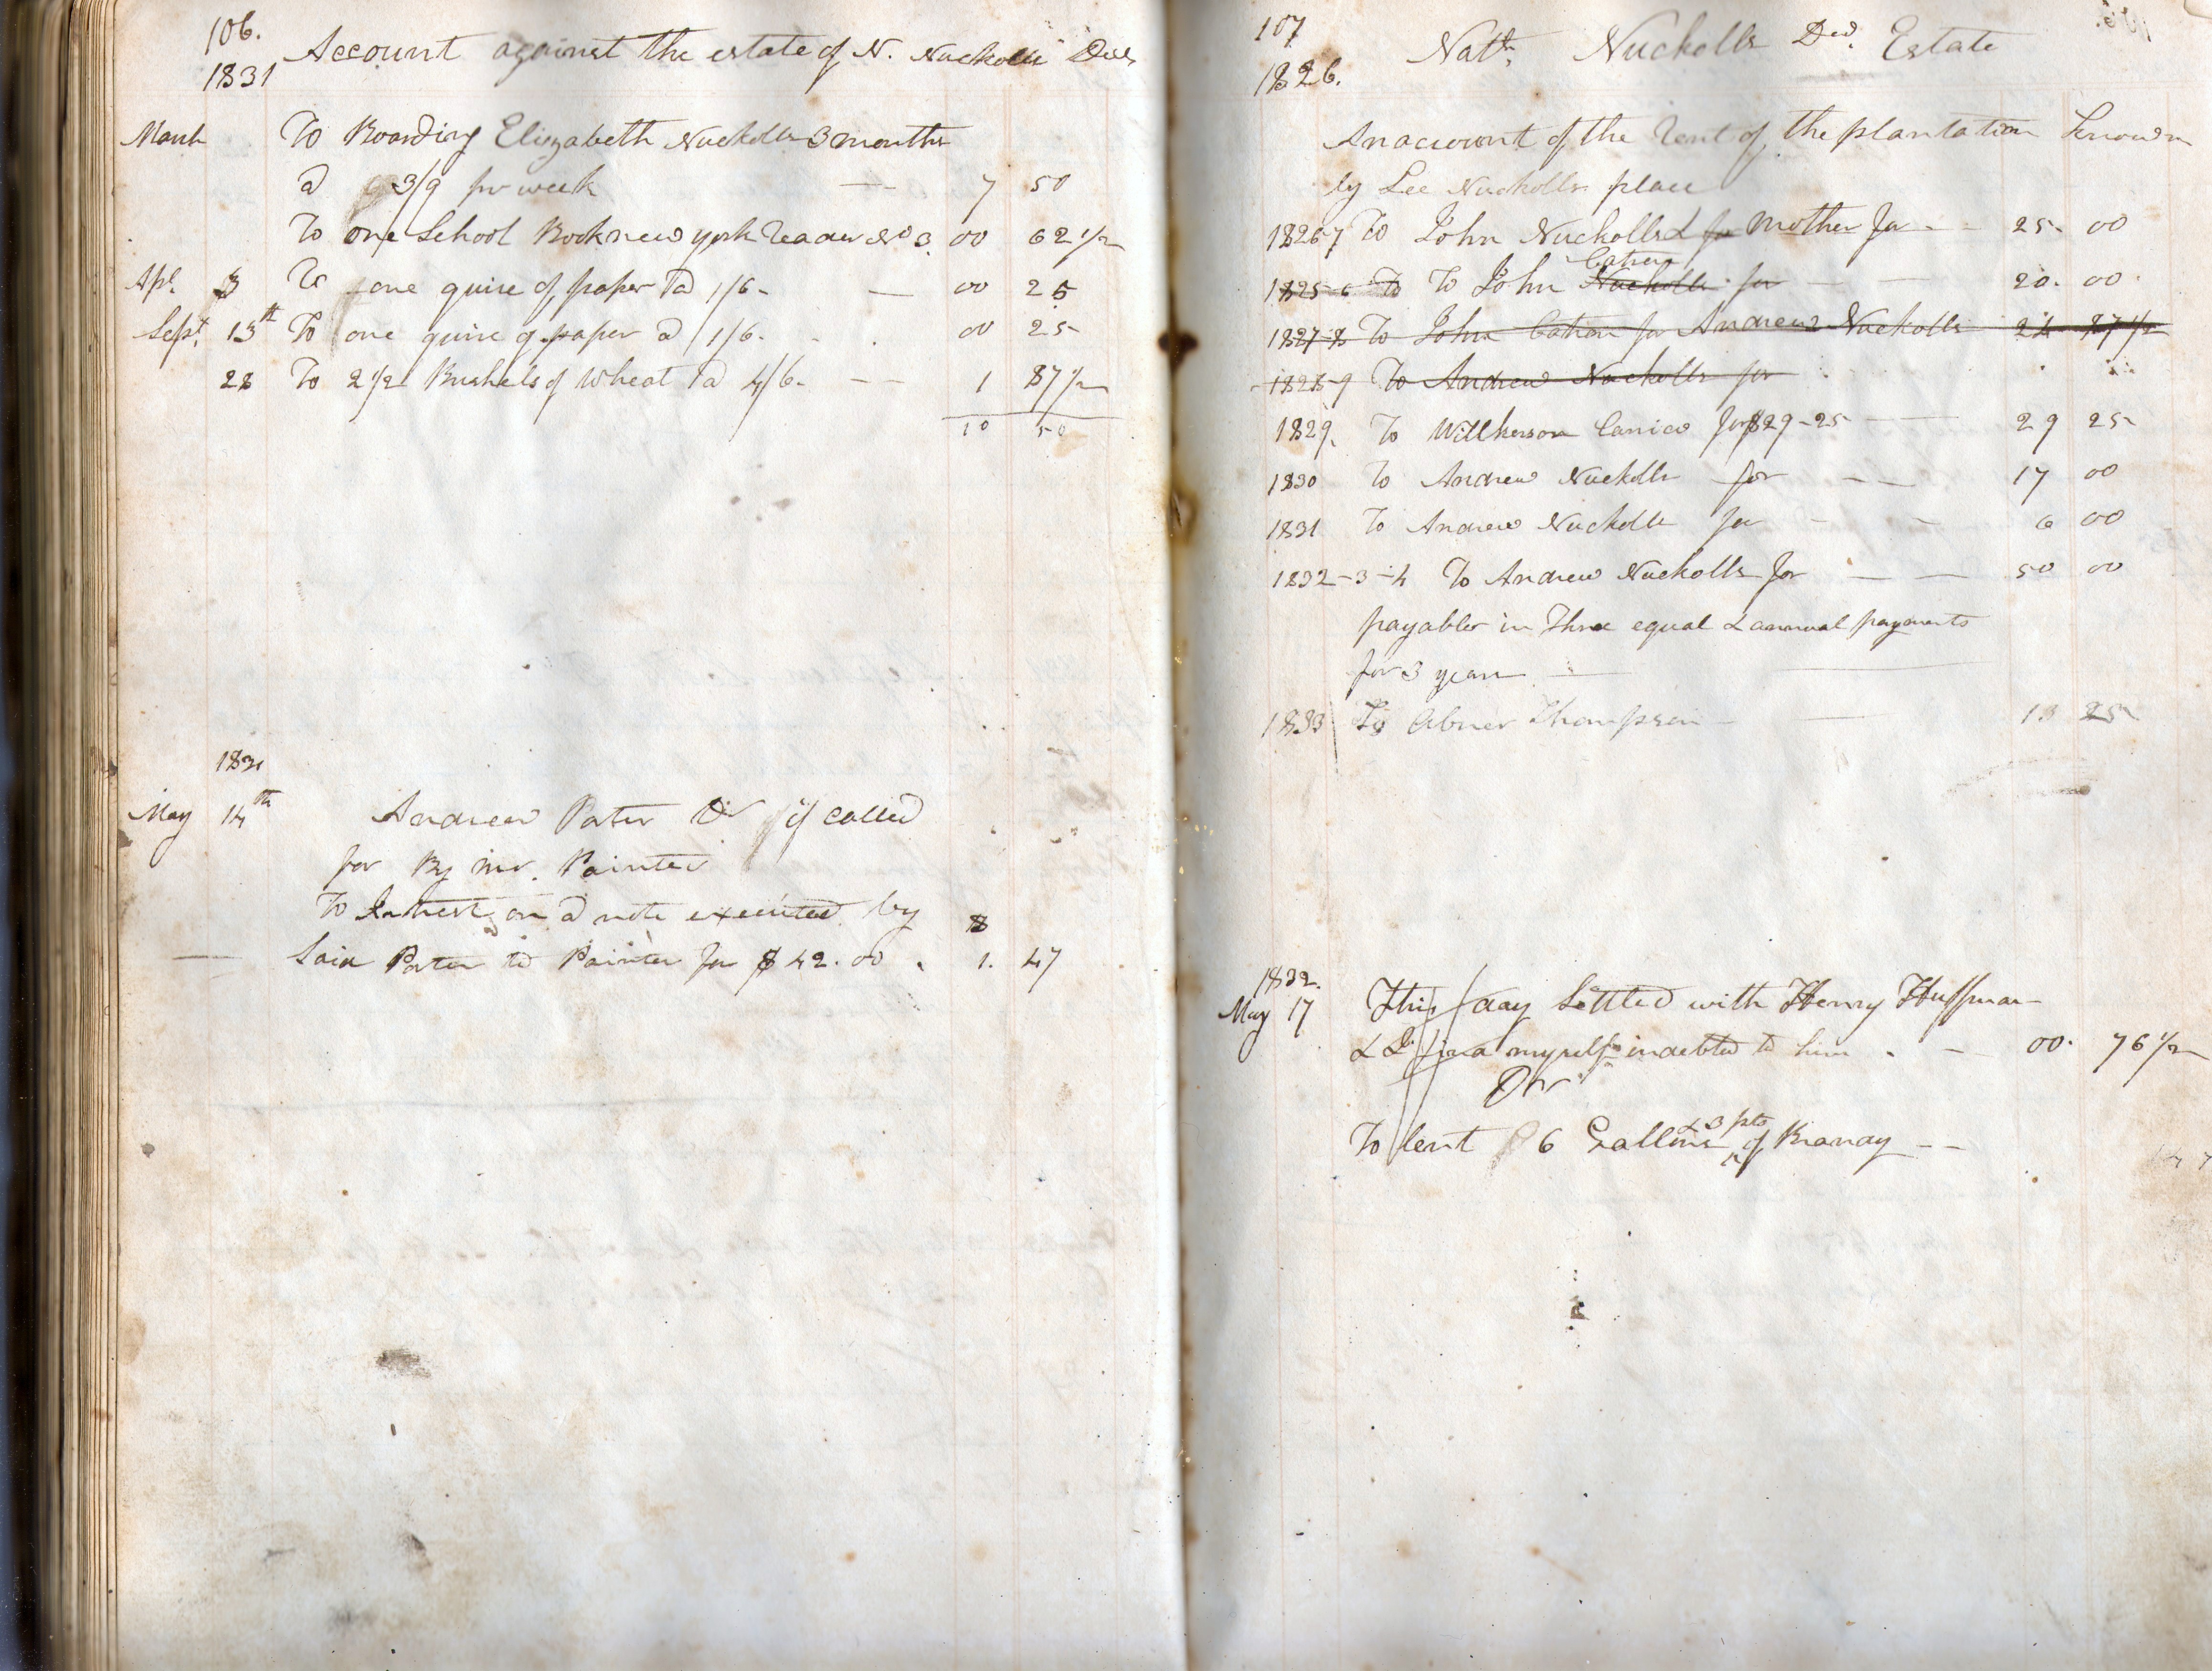 106.
1831 Account against the estate of N. Nuckolls Decd
March To Boarding Elizabeth Nuckolls 3 months
a 3/9 pr week — 7 50
To one School Book new york Reader No 3 00 62 1/2
Apl. 3 To one quire of paper a 1/6 - — 00 25
Sept. 13th To one quire of paper a 1/6 - 00 25
28 To 2 1/2 Bushels of Wheat a 4/6 - — 1 87 1/2
10 50
1831
May 14th Andrew Porter Dr if called
for By Mr. Painter
To Interest on a note executed by
Said Porter to Painter for $ 42.00 . 1. 47
107
1826. Nath. Nuckolls Decd. Estate
An account of the Rent of the plantation known
by Lee Nuckolls place
1826-7 To John Nuckolls & for Mother for - - 25. 00
1825-6 To To John Nuckolls Catron for — 20. 00
1827-8 To John Catron for Andrew Nuckolls 24 87 1/2
1828-9 To Andrew Nuckolls for
1829. To Willkerson for $29-25 — 29 25
1830 To Andrew Nuckolls for — 17 00
1831 To Andrew Nuckolls for - - 6 00
1832-3-4 To Andrew Nuckolls for — — 50 00
payable in Three equal & annual payments
for 3 years —
1833 To Abner Thompson — 13 25
1832.
May 17 This day Settled with Henry Huffman
& I find myself indebted to him . - 00. 76 1/2
Dr
To lent 6 Gallons & 3 pts of Brandy — —